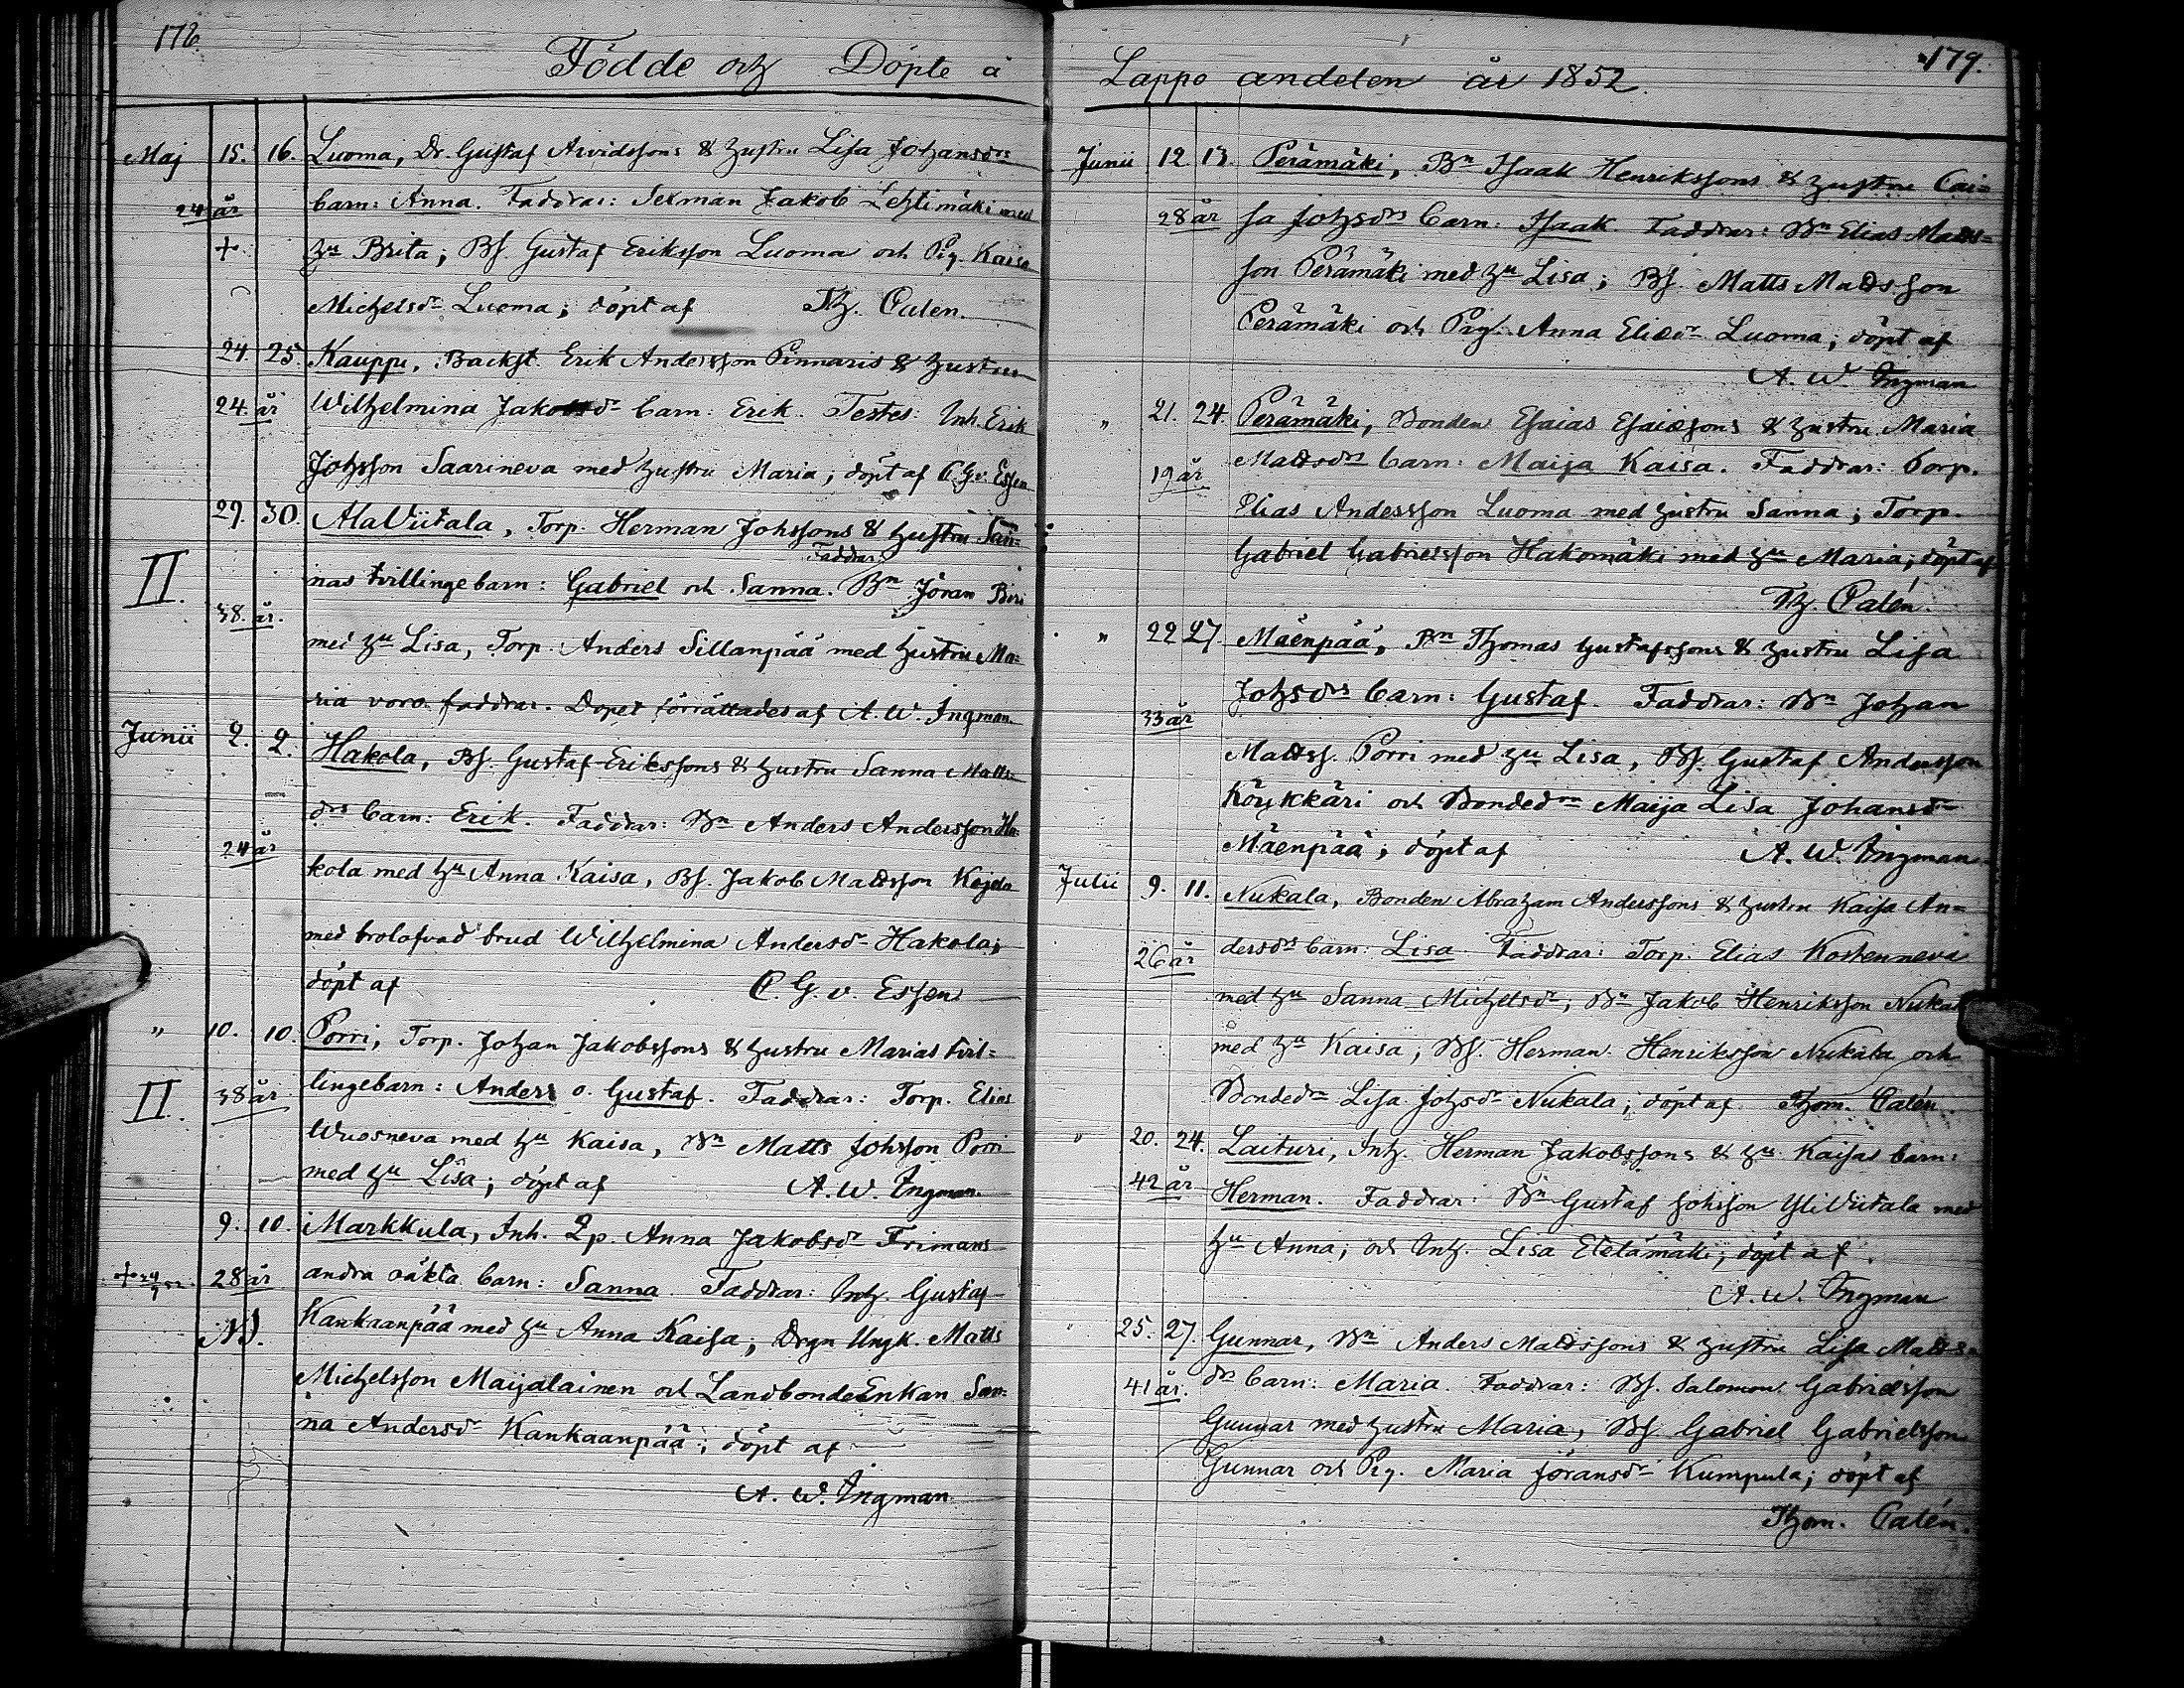 178.
Födde och Döpte å
Maj 15. 16. Luoma, Dr. Gustaf Arvidssons & hustru Lisa Johansdrs
24 år barn: Anna. Faddrar: Sexman Jakob Lehtimäki med
+ hu Brita; Bs. Gustaf Eriksson Luoma och Pig. Kaisa
Michelsdr Luoma; döpt af Th. Calen.
24. 25. Kauppi, Backst. Erik Andersson Pinnaris & hustru
24. år Wilhelmina Jakobsdr barn: Erik. Testes: Inh. Erik
Johsson Saarineva med hustru Maria; döpt af C. G. v. Essen
29. 30. AlaViitala, Torp. Herman Johssons & hustru San=
Faddrar:
II. 38. år. nas tvillingebarn: Gabriel och Sanna. Bn Jöran Biri
med hu Lisa, Torp. Anders Sillanpää med hustru Ma=
ria voro faddrar. Dopet förrättades af A. W. Ingman.
Junii 2. 2. Hakola, Bs. Gustaf Erikssons & hustru Sanna Matts=
24 år drs barn: Erik. Faddrar: Bn Anders Andersson Ha=
kola med hu Anna Kaisa, Bs. Jakob Mattsson Kojola
med trolofvad brud Wilhelmina Andersdr Hakola;
döpt af C. G. v. Essen
" 10. 10. Porri, Torp. Johan Jakobssons & hustru Marias tvil=
II. 38 år lingebarn: Anders o. Gustaf. Faddrar: Torp. Elias
Wuosneva med hu Kaisa, Bn Matts Johsson Porri
med hu Lisa; döpt af A. W. Ingman.
9. 10. Markkula, Inh. Qp. Anna Jakobsdr Frimans
28 år andra oäkta barn: Sanna. Faddrar: Inh. Gustaf
Kankaanpää med hu Anna Kaisa; Drgn Ungk. Matts
Michelsson Maijalainen och LandbondeEnkan San=
na Andersdr Kankaanpää; döpt af
A. W. Ingman
179.
Lappo andelen år 1852.
Junii 12 13. Perämäki, Bn Isaak Henrikssons & hustru Cai=
28 år sa Johsdrs barn: Isaak. Faddrar: Bn Elias Matts=
son Perämäki med hu Lisa; Bs. Matts Mattsson
Perämäki och Pig. Anna Eliædr Luoma; döpt af
A. W. Ingman
" 21. 24. Perämäki, Bonden Esaias Esaiæsons & hustru Maria
19 år Mattsdrs barn: Maija Kaisa. Faddrar: Torp.
Elias Andersson Luoma med hustru Sanna; Torp.
Gabriel Gabrielsson Hakomäki med hu Maria; döpt af
Th. Calén.
" 22 27. Mäenpää, Bn Thomas Gustafssons & hustru Lisa
33 år Johsdrs barn: Gustaf. Faddrar: Bn Johan
Mattss. Porri med hu Lisa, Bs. Gustaf Andersson
Köykkäri och Bondedrn Maija Lisa Johansdr
Mäenpää; döpt af A. W. Ingman
Julii 9. 11. Nukala, Bonden Abraham Anderssons & hustru Kaisa An=
26 år dersdrs barn: Lisa. Faddrar: Torp. Elias Koskenneva
med hu Sanna Michelsdr; Bn Jakob Henriksson Nukala
med hu Kaisa, Bs. Herman Henriksson Nukala och
Bondedrn Lisa Johsdr Nukala; döpt af Thom. Calén.
" 20. 24. Laituri, Inh. Herman Jakobssons & hu Kaisas barn:
42 år Herman. Faddrar: Bn Gustaf Johsson YliViitala med
hu Anna; och Inh. Lisa Etelämäki; döpt af
A. W. Ingman
" 25. 27. Gunnar, Bn Anders Mattssons & hustru Lisa Matts=
41 år. drs barn: Maria. Faddrar: Bs. Salomon Gabrielsson
Gunnar med hustru Maria, Bs. Gabriel Gabrielsson
Gunnar och Pig. Maria Jöransdr Kumpula; döpt af
Thom. Calén.